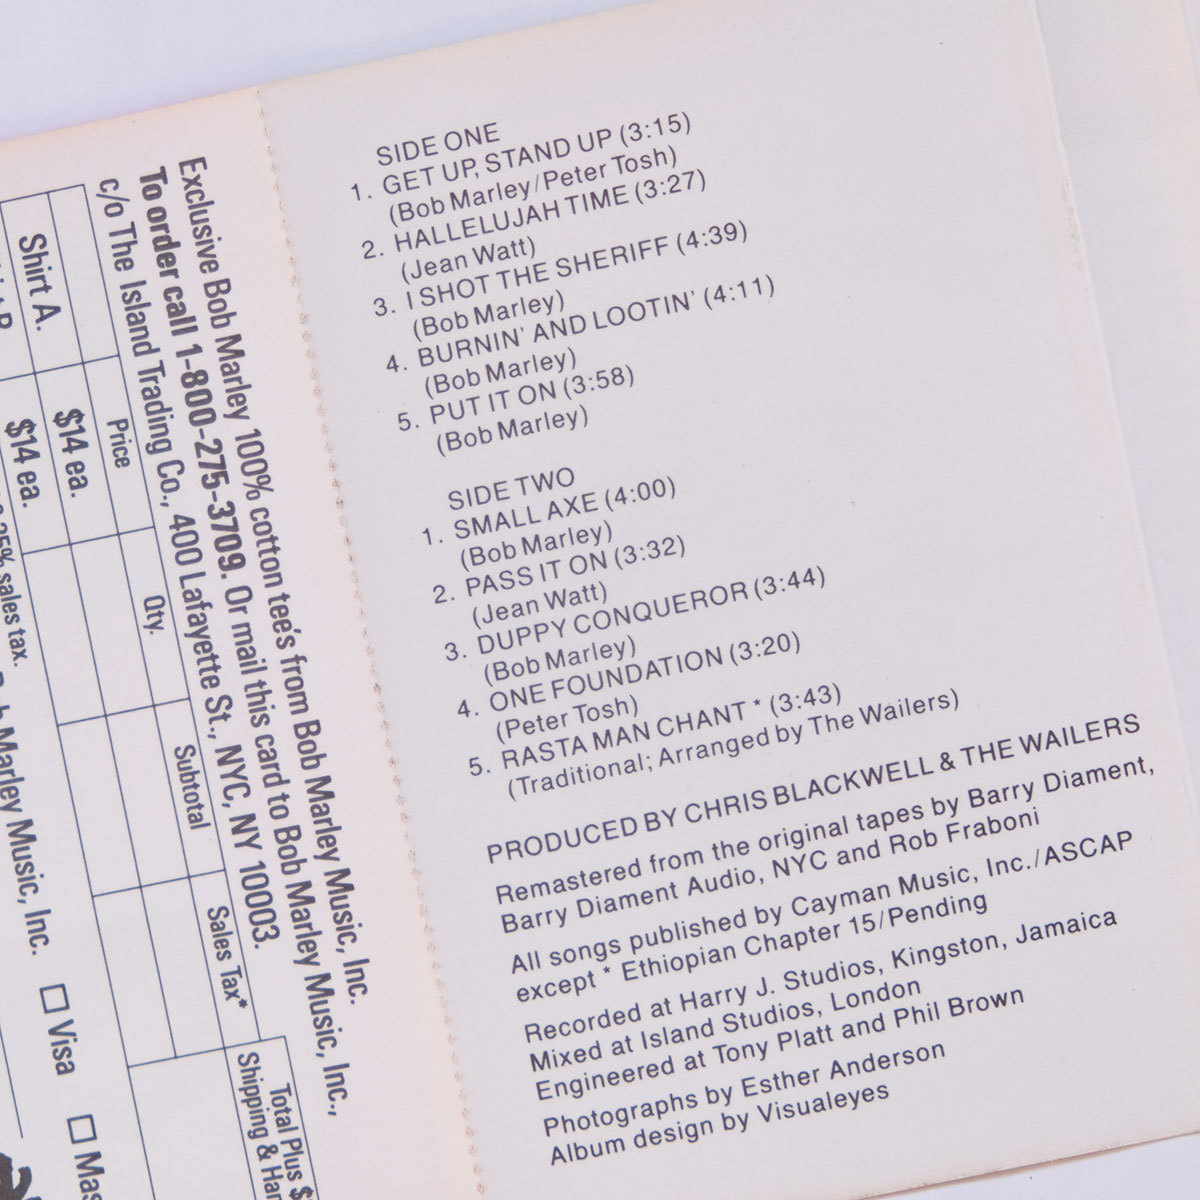 SIDE ONE
1. GET UP, STAND UP (3:15)
(Bob Marley/Peter Tosh)
2. HALLELUJAH TIME (3:27)
(Jean Watt)
3. I SHOT THE SHERIFF (4:39)
(Bob Marley)
4. BURNIN' AND LOOTIN' (4:11)
(Bob Marley)
5. PUT IT ON (3:58)
(Bob Marley)
SIDE TWO
1. SMALL AXE (4:00)
(Bob Marley)
2. PASS IT ON (3:32)
(Jean Watt)
3. DUPPY CONQUEROR (3:44)
(Bob Marley)
4. ONE FOUNDATION (3:20)
(Peter Tosh)
5. RASTA MAN CHANT * (3:43)
(Traditional; Arranged by The Wailers)
PRODUCED BY CHRIS BLACKWELL & THE WAILERS
Remastered from the original tapes by Barry Diament,
Barry Diament Audio, NYC and Rob Fraboni
All songs published by Cayman Music, Inc./ASCAP
except * Ethiopian Chapter 15/Pending
Recorded at Harry J. Studios, Kingston, Jamaica
Mixed at Island Studios, London
Engineered at Tony Platt and Phil Brown
Photographs by Esther Anderson
Album design by Visualeyes
Exclusive Bob Marley 100% cotton tee's from Bob Marley Music, Inc.
To order call 1-800-275-3709. Or mail this card to Bob Marley Music, Inc.,
c/o The Island Trading Co., 400 Lafayette St., NYC, NY 10003.
Price Qty. Subtotal Sales Tax* Total Plus
Shipping &
Shirt A. $14 ea.
$14 ea.
sales tax.
Marley Music, Inc. Visa